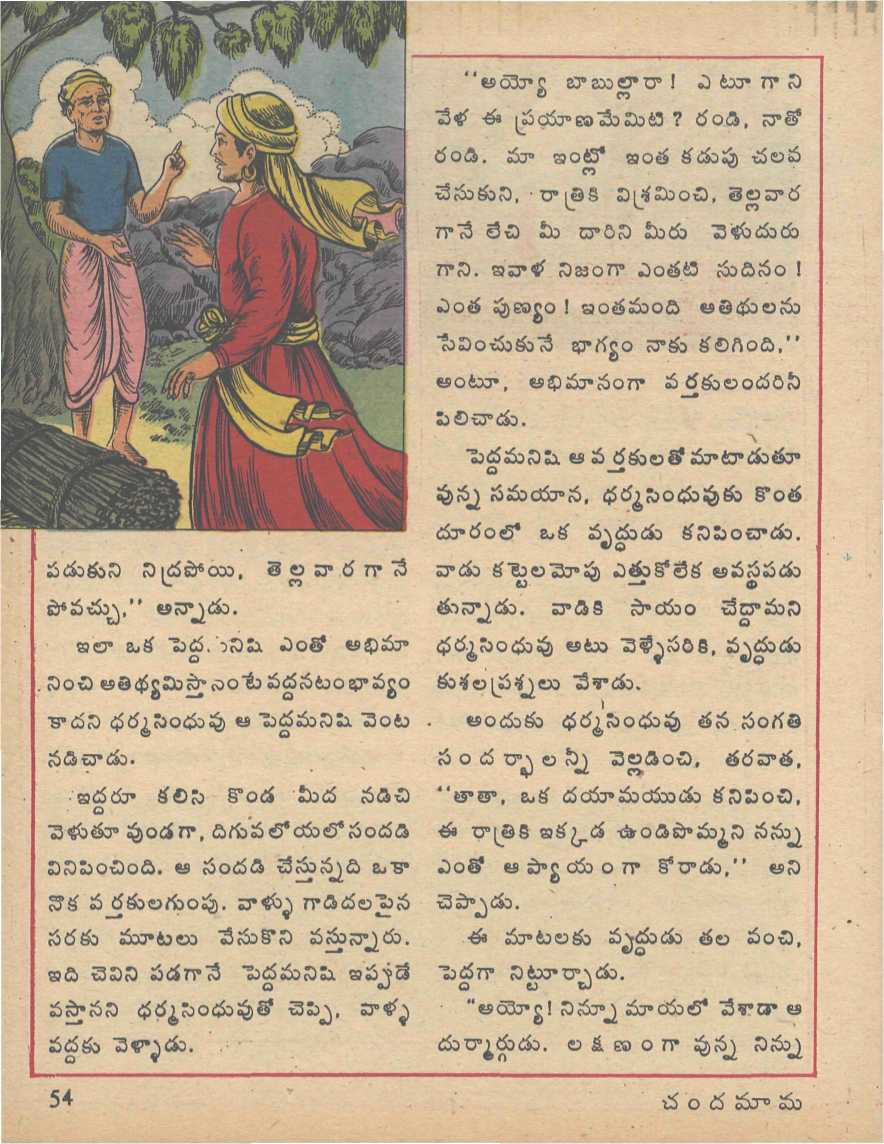 పడుకుని నిద్రపోయి, తెల్లవారగానే
పోవచ్చు,'' అన్నాడు.
ఇలా ఒక ఎంతో అభిమా
నించి ఆతిథ్యమిస్తానంటే వద్దనటంభావ్యం
కాదని ధర్మసింధువు ఆ పెద్దమనిషి వెంట
నడిచాడు.
ఇద్దరూ కలిసి కొండ మీద నడిచి
వెళుతూ వుండగా, దిగువలోయలో సందడి
వినిపించింది. ఆ సందడి చేస్తున్నది ఒకా
నొక వర్తకులగుంపు. వాళ్ళు గాడిదలపైన
సరకు మూటలు వేసుకొని వస్తున్నారు.
ఇది చెవిని పడగానే పెద్దమనిషి ఇప్పుడే
వస్తానని ధర్మసింధువుతో చెప్పి, వాళ్ళ
వద్దకు వెళ్ళాడు.
''అయ్యో బాబుల్లారా! ఎటూ గాని
వేళ ఈ ప్రయాణమేమిటి? రండి, నాతో
రండి. మా ఇంట్లో ఇంత కడుపు చలవ
చేసుకుని, రాత్రికి విశ్రమించి, తెల్లవార
గానే లేచి మీ దారిని మీరు వెళుదురు
గాని. ఇవాళ నిజంగా ఎంతటి సుదినం!
ఎంత పుణ్యం! ఇంతమంది అతిథులను
సేవించుకునే భాగ్యం నాకు కలిగింది,''
అంటూ, అభిమానంగా వర్తకులందరినీ
పిలిచాడు.
పెద్దమనిషి ఆ వర్తకులతో మాటాడుతూ
వున్న సమయాన, ధర్మసింధువుకు కొంత
దూరంలో ఒక వృద్ధుడు కనిపించాడు.
వాడు కట్టెలమోపు ఎత్తుకోలేక అవస్థపడు
తున్నాడు. వాడికి సాయం చేద్దామని
ధర్మసింధువు అటు వెళ్ళేసరికి, వృద్ధుడు
కుశలప్రశ్నలు వేశాడు.
అందుకు ధర్మసింధువు తన సంగతి
సందర్భాలన్నీ వెల్లడించి, తరవాత,
''తాతా, ఒక దయామయుడు కనిపించి,
ఈ రాత్రికి ఇక్కడ ఉండిపొమ్మని నన్ను
ఎంతో ఆప్యాయంగా కోరాడు,'' అని
చెప్పాడు.
ఈ మాటలకు వృద్ధుడు తల వంచి,
పెద్దగా నిట్టూర్చాడు.
"అయ్యో! నిన్నూ మాయలో వేశాడా ఆ
దుర్మార్గుడు. లక్షణంగా వున్న నిన్ను
54
చందమామ